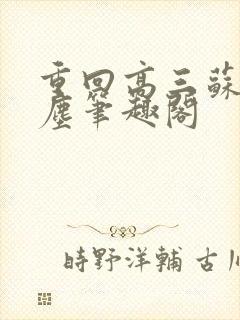 重回高三蘇
塵筆趣閣
時野洋輔 古川